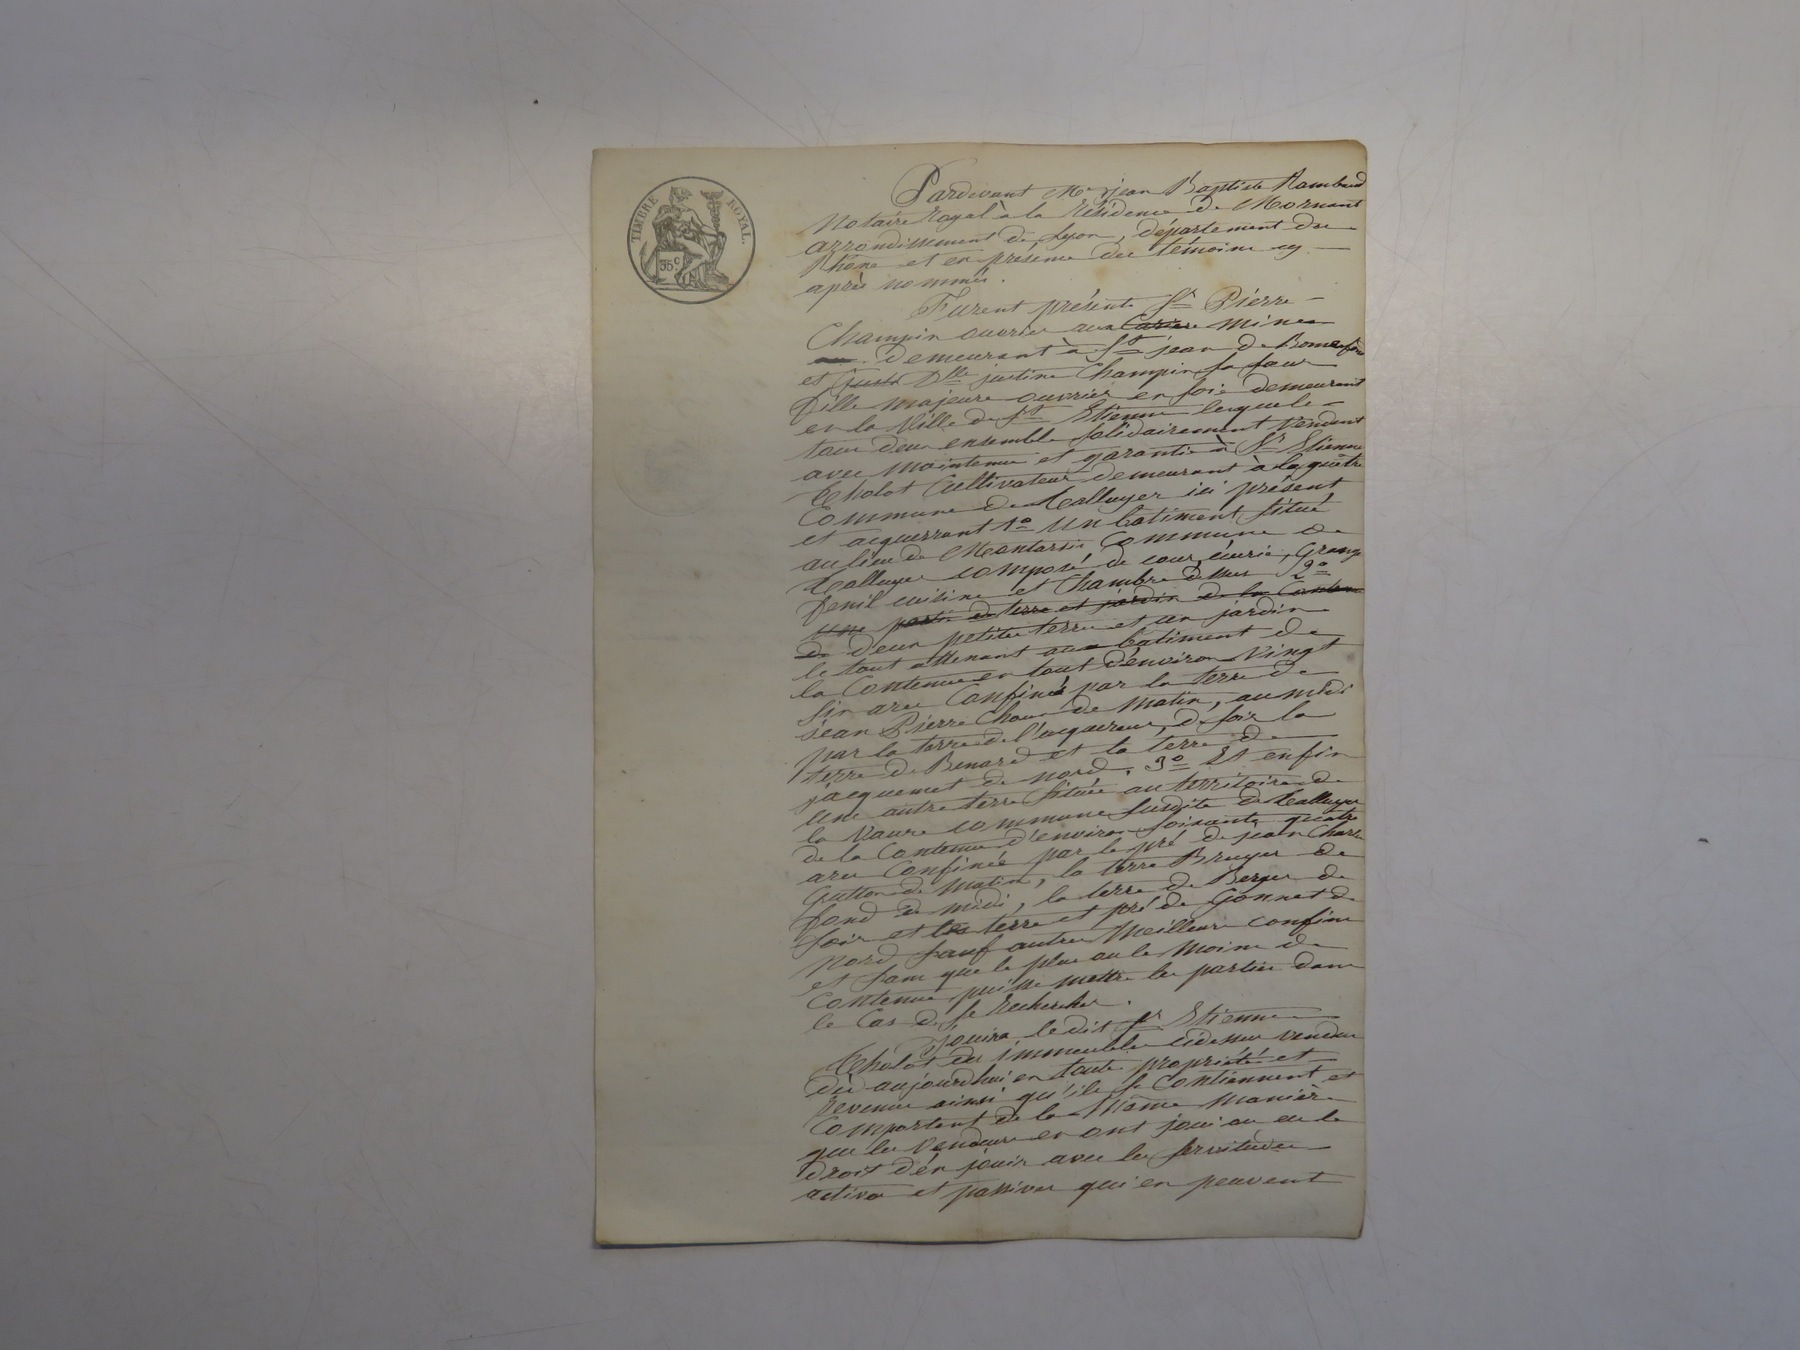 TIMBRE ROYAL.
35 c
Pardevant Me jean Baptiste Rambaud
Notaire Royal à la Résidence de Mornant
arrondissement de Lyon, département du
Rhône et en présence des témoins cy
après nommés.
Furent présents Sr Pierre
Champin ouvrier aux mines
demeurant à St jean de Bonnefon
et Dlle justine Champin sa sœur
fille majeure ouvrière en soie demeurant
en la Ville de St Etienne lesquels
tous deux ensemble solidairement vendent
avec maintenue et garantie à Sr Etienne
Cultivateur demeurant à
Commune de ici présent
et acquerrant 1o Un batiment situé
au lieu de Commune de
composé de cour, écurie, Grange
fenil cuisine et Chambre dessus 2o
une partie de terre et jardin de la Contenue
de deux petites terres et un jardin
le tout attenant aux batiment de
la Contenue en tout d'environ Vingt
Six ares Confinés par la terre de
jean Pierre de matin, au midi
par la terre de l'acquereur, de soir la
terre de Benard et la terre de
jacquemet de nord. 3o Et enfin
Une autre terre située au territoire de
la Vaure commune susdite de
de la Contenue d'environ soixante quatre
ares Confinée par le pré de jean
de matin, la terre Bruyer de
de midi, la terre de Berger de
soir et les terre et pré de Gonnet de
nord sauf autres meilleurs confins
et sans que le plus ou le moins de
Contenue puisse mettre les parties dans
le Cas de se Rechercher.
jouira le dit Sr Etienne
des immeubles cidessus vendus
dès aujourdhui en toute propriété et
revenus ainsi qu'ils se Contiennent et
Comportent de la même manière
que les Vendeurs en ont joui ou eu le
droit d'en jouir avec les servitudes
actives et passives qui en peuvent